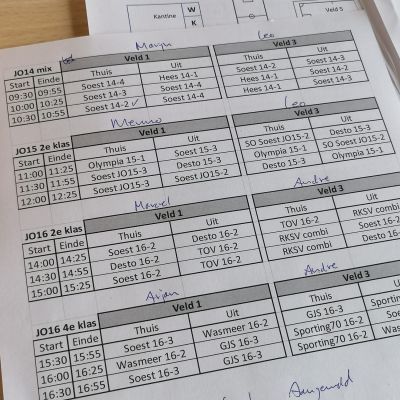 Kantine W K
Veld 5
Marjn Leo
JO14 mix Veld 1 Veld 3
Start Einde Thuis Uit Thuis Uit
09:30 09:55 Soest 14-4 Hees 14-1 Soest 14-2 Soest 14-3
10:00 10:25 Soest 14-3 Soest 14-4 Hees 14-1 Soest 14-2
10:30 10:55 Soest 14-2 Soest 14-4 Hees 14-1 Soest 14-3
Menno Leo
JO15 2e klas Veld 1 Veld 3
Start Einde Thuis Uit Thuis Uit
11:00 11:25 Olympia 15-1 Soest 15-3 SO Soest JO15-2 Desto 15-3
11:30 11:55 Soest JO15-3 Desto 15-3 Olympia 15-1 SO Soest JO15-2
12:00 12:25 Soest JO15-3 Desto 15-3 Olympia 15-1
Marcel Andre
JO16 2e klas Veld 1 Veld 3
Start Einde Thuis Uit Thuis Uit
14:00 14:25 Soest 16-2 Desto 16-2 TOV 16-2 RKSV combi
14:30 14:55 Desto 16-2 TOV 16-2 RKSV combi Soest 16-2
15:00 15:25 Soest 16-2 TOV 16-2 RKSV combi Desto 16-2
Arjan Andre
JO16 4e klas Veld 1 Veld 3
Start Einde Thuis Uit Thuis
15:30 15:55 Soest 16-3 Wasmeer 16-2 GJS 16-3 Sporting
16:00 16:25 Wasmeer 16-2 GJS 16-3 Sporting70 16-2 Soest
16:30 16:55 Soest 16-3 GJS 16-3 Sporting70 16-2 Wasm